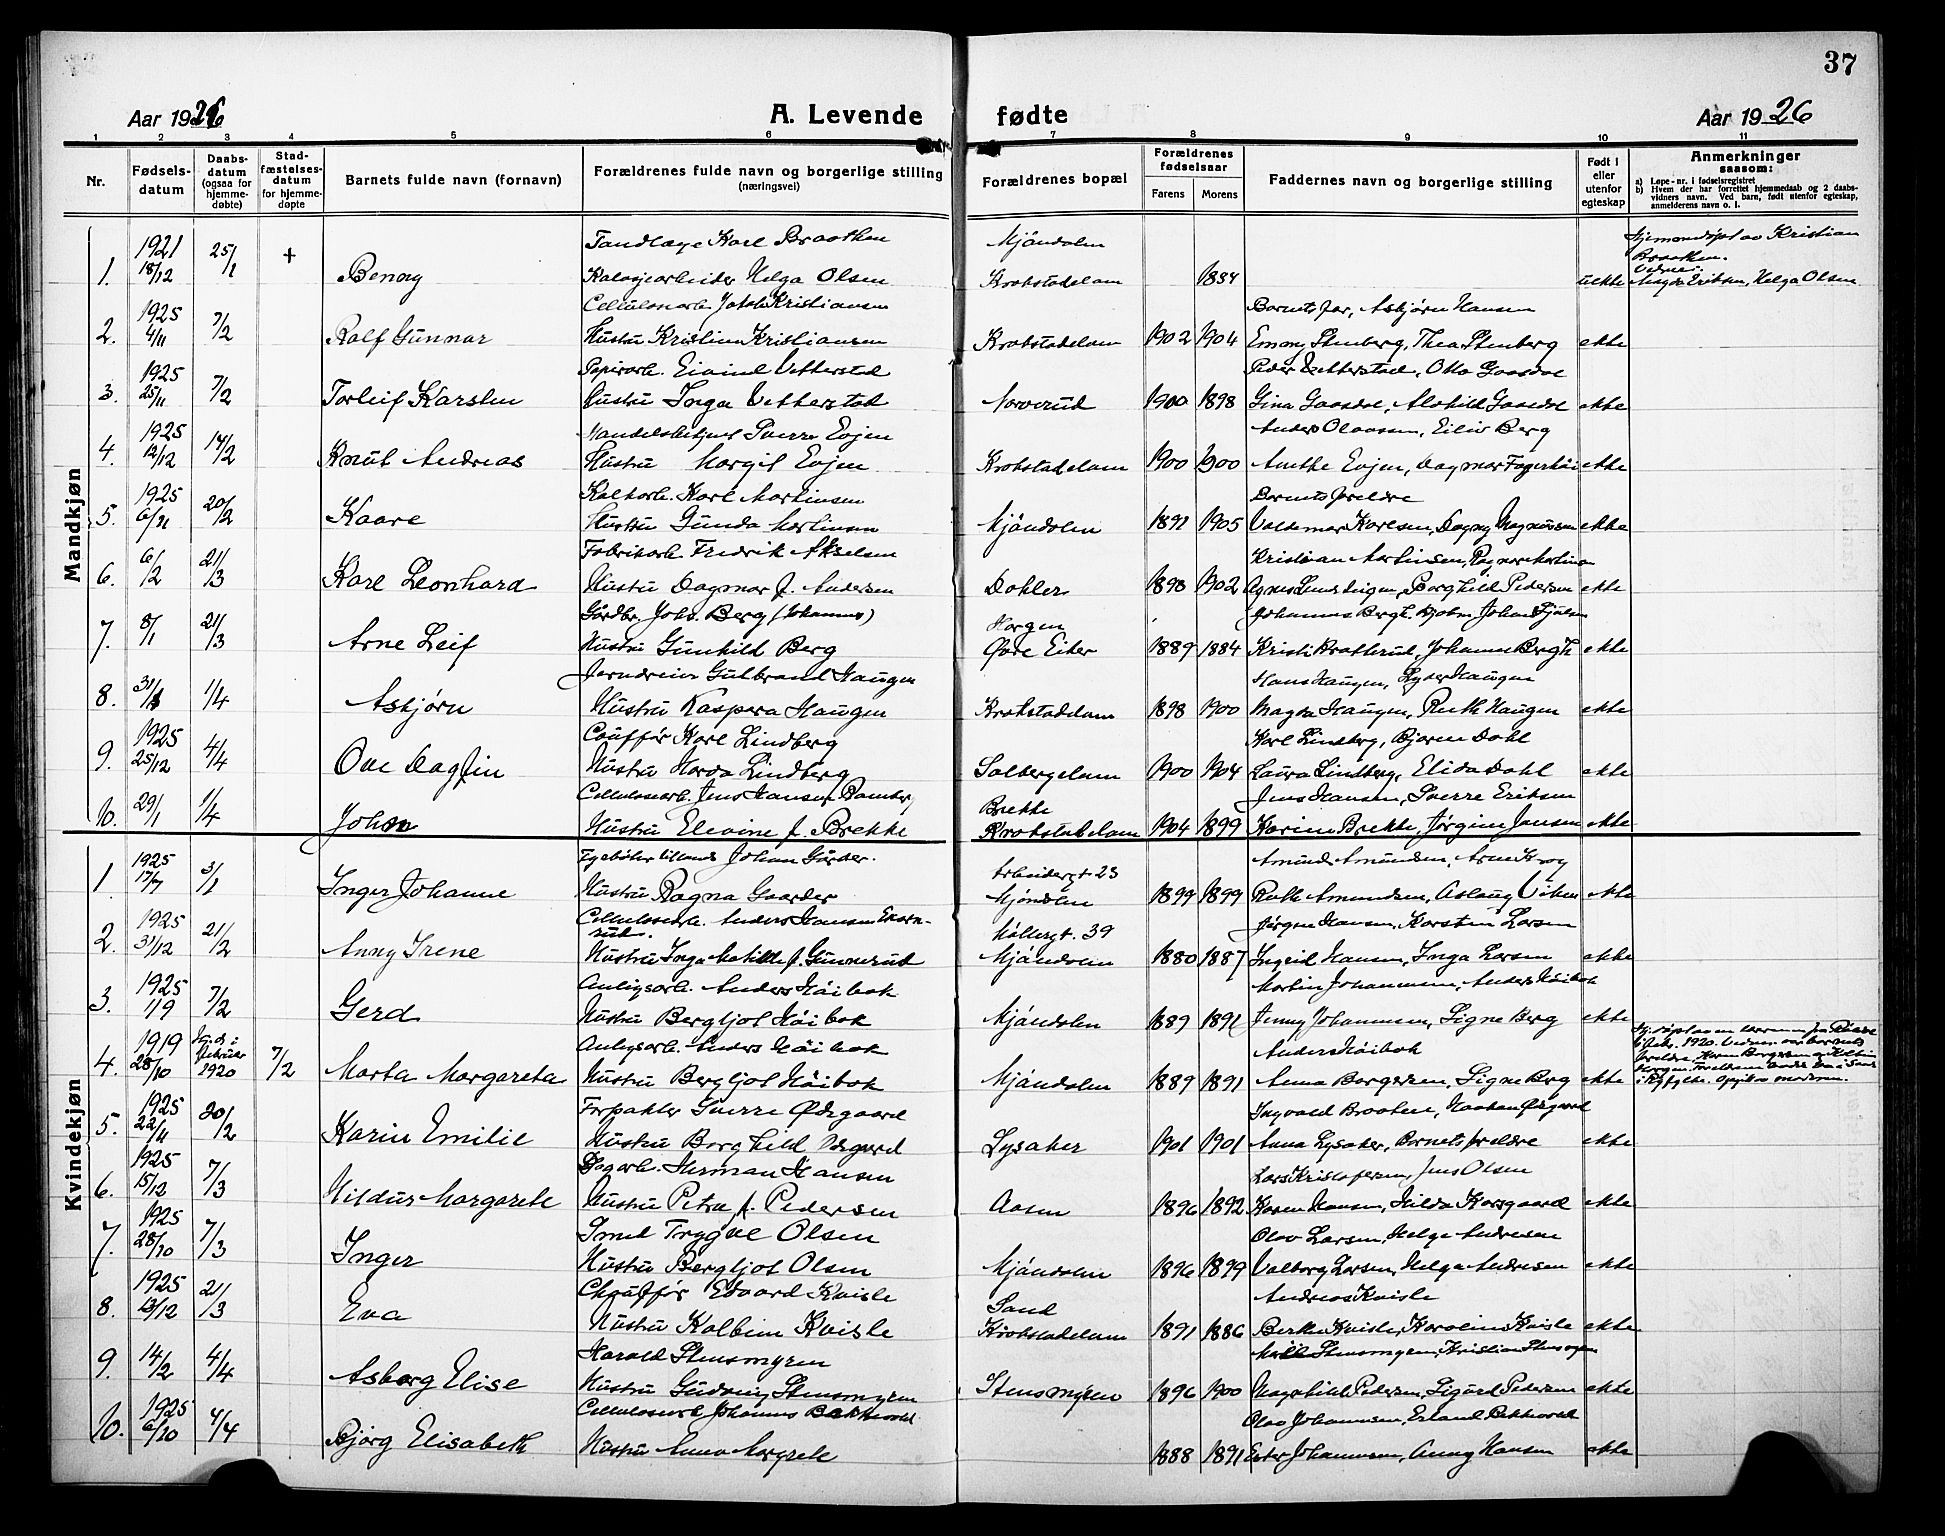 37
Aar 1926 A. Levende fødte Aar 1926
1 2 3 4 5 6 7 8 9 10 11
Nr. Fødsels-datum Daabs-datum (ogsaa for hjemme-døbte) Stad-fæstelses-datum for hjemme-døpte Barnets fulde navn (fornavn) Forældrenes fulde navn og borgerlige stilling (næringsvei) Forældrenes bopæl Forældrenes fødselsaar Farens Morens Faddernes navn og borgerlige stilling Født i eller utenfor egteskap Anmerkninger saasom: a) Løpe-nr. i fødselsregistret b) Hvem der har forrettet hjemmedaab og 2 daabs-vidners navn. Ved barn, født utenfor egteskap, anmelderens navn o. l.
Mandkjøn
1921 25/1 + Tandlæge Karl Braathen Mjøndalen Hjemmedøpt av Kristian Braathen.
1. 18/12 Benny Helga Olsen Krokstadelven 1884 uekte Magda Eriksen, Helga Olsen
1925 Cellulosearb. Jakob Kristiansen Barnets far, Asbjørn Hansen
2. 4/11 7/2 Ralf Gunnar Hustru Kristine Kristiansen Krokstadelven 1902 1904 Emmy Stenberg, Thea Stenberg ekte
1925 Papirarb. Eivind Vetterstad Peder Vetterstad, Otto Gaasdal
3. 25/11 7/2 Torleif Karsten Hustru Inga Vetterstad 1900 1898 Gina Gaasdal, Alvhild Gaasdal ekte
1925 Handelsbetjent Sverre Evjen Anders Olaussen, Eiliv Berg
4. 12/12 14/2 Knut Andreas Hustru Margit Evjen Krokstadelven 1900 1900 Anethe Evjen, Dagmar ekte
1925 Karl Martinsen Barnets foreldre
5. 20/2 Kaare Hustru Gunda Martinsen Mjøndalen 1891 1905 Valdemar Karlsen, Dagny Magnussen ekte
6/2 Fabrikarb. Fredrik Akselsen Kristian Martinsen, Ragnar Martinsen
6. 21/3 Karl Leonhard Hustru Dagmar f. Andersen Dahler 1898 1902 Borghild Pedersen ekte
8/1 Gårdbr. Johs. Berg (Johannes) Horgen
7. 21/3 Arne Leif Hustru Gunhild Berg Øvre Eiker 1889 1884 Kristi Bratterud, ekte
31/1 Gulbrand Haugen Hans Haugen, Lyder Haugen
8. 1/4 Asbjørn Hustru Kaspara Haugen Krokstadelven 1898 1900 Magda Haugen, Ruth Haugen ekte
1925 Karl Lindberg Karl Lindberg, Bjarne Dahl
9. 25/12 4/4 Ove Dagfin Hustru Lindberg Solbergelven 1900 1904 Laura Lindberg, Elida Dahl ekte
Cellulosearb. Jens Hansen Brekke Jens Hansen, Sverre Eriksen
10. 29/1 1/4 John Hustru Elevine f. Brekke Krokstadelven 1904 1899 Karine Brekke, Jørgine Jansen ekte
Kvindekjøn
1925 Johan Gårder. Arbeidergt 23 Amund Amundsen, Arne Krog
1. 17/7 3/1 Inger Johanne Hustru Ragna Gaarder Mjøndalen 1899 1899 Ruth Amundsen, Aslaug Viken ekte
1925 Cellulosearb. Anders Hansen Ekornrud. Møllergt. 39 Jørgen Hansen, Karsten Larsen
2. 31/12 21/2 Anny Irene Hustru Inga Matilde f. Gunnerud Mjøndalen 1880 1887 Ingrid Hansen, Inga Larsen ekte
1925 Anlægsarb. Anders Høibak Martin Johannesen, Anders Høibak
3. 1/9 7/2 Gerd Hustru Bergljot Høibak Mjøndalen 1889 1891 Jenny Johannesen, Signe Berg ekte
1919 Februar Anlægsarb. Anders Høibak Anders Høibak
4. 28/10 1920 7/2 Marta Margareta Hustru Bergljot Høibak Mjøndalen 1889 1891 Anna Borgersen, Signe Berg ekte
1925 Forpakter Sverre Ødegaard Ingvald Braaten, Haakon Ødegaard
5. 22/11 20/2 Karin Emilie Hustru Borghild Ødegaard Lysaker 1901 1901 Anna Lysaker, Barnets foreldre ekte
1925 Dagarb. Herman Hansen Lars Kristofersen, Jens Olsen
6. 15/12 7/3 Hildur Margarete Hustru Petra f. Pedersen Aasen 1896 1892 Karen Hansen, Hilda Korsgaard ekte
1925 Smed Trygve Olsen Olav Larsen, Helge Andresen
7. 28/10 7/3 Inger Hustru Bergljot Olsen Mjøndalen 1896 1899 Valborg Larsen, Helga Andresen ekte
1925 Chauffør Edvard Kvisle Sand Andreas Kvisle
8. 13/12 21/3 Eva Hustru Kolbine Kvisle Krokstadelven 1891 1886 Berthe Kvisle, Karoline Kvisle ekte
Harald Stensmyren
9. 14/2 4/4 Asborg Elise Hustru Gudveig Stensmyren Stensmyren 1896 1900 Magnhild Pedersen, Sigurd Pedersen ekte
1925 Cellulosearb. Johannes Bakkevold Olav Johannesen, Erland Bakkevold
10. 6/10 4/4 Bjørg Elisabeth Hustru Anna Margrete 1888 1891 Ester Johannesen, Anny Hansen ekte